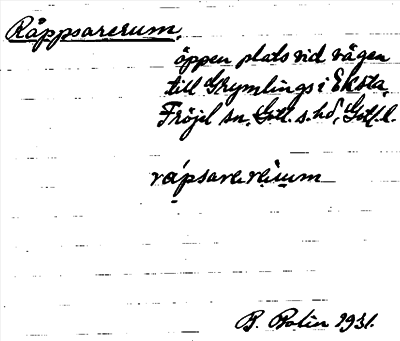 Räppsarerum,
öppen plats vid vägen
till Skymlings i Eksta,
Fröjel sn, Gotl. s. hd, Gotl. l.
B. Bolin 1931.